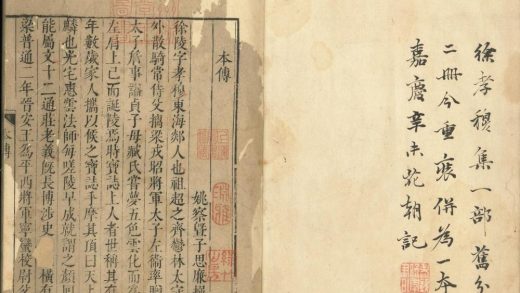 徐孝穆集一部舊分
二冊今重裝併為一本
嘉慶辛未花朝記
本傳
姚察暨子思廉撰
徐陵字孝穆東海郯人也祖超之齊鬱林太守
外散騎常侍父摛梁戎昭將軍太子左衛率贈
太子詹事謚貞子母臧氏嘗夢五色雲化而為
左肩上已而誕陵焉時寶誌上人者世稱其有
年數歲家人攜以候之寶誌手摩其頂曰天上
麟也光宅惠雲法師每嗟陵早成就謂之顏回
能屬文十二通莊老義既長博涉史 橫有
梁普通二年晉安王為平西將軍寧蠻校尉父
本傳